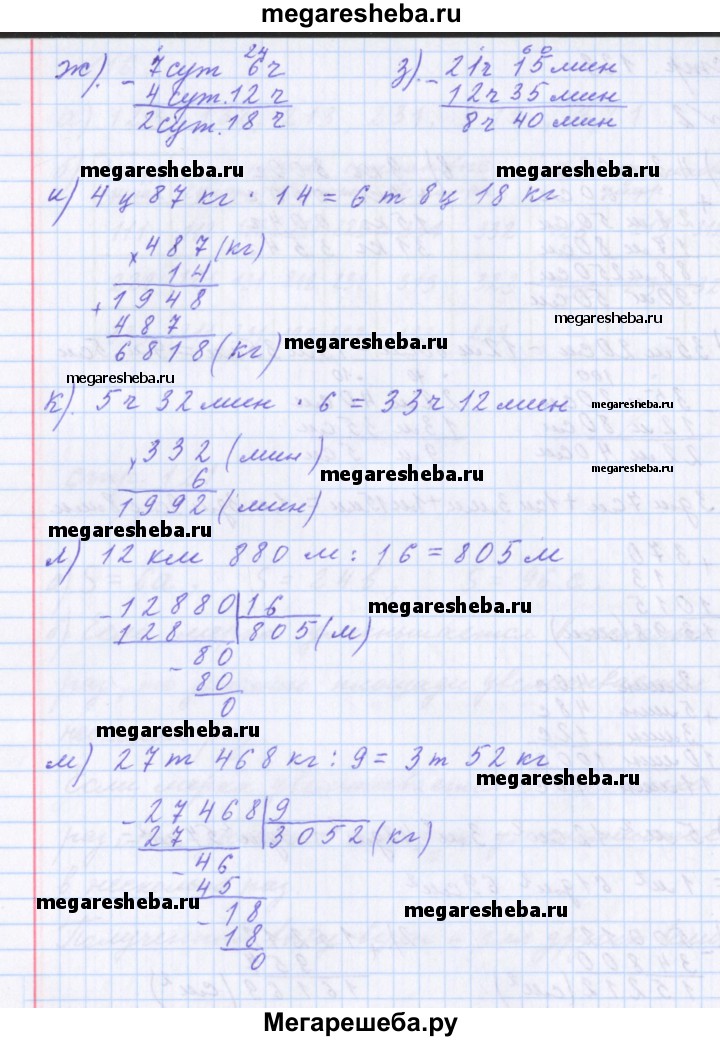 megaresheba.ru
ж). - 7 сут 6 ч 24 з). - 21 ч 15 мин 60
4 сут. 12 ч 12 ч 35 мин
2 сут. 18 ч 8 ч 40 мин
megaresheba.ru megaresheba.ru
и) 4 ц 87 кг · 14 = 6 т 8 ц 18 кг
× 487 (кг)
14
+ 1948
megaresheba.ru
487
6818 (кг) megaresheba.ru
megaresheba.ru
к). 5 ч 32 мин · 6 = 33 ч 12 мин megaresheba.ru
× 332 (мин)
6 megaresheba.ru megaresheba.ru
1992 (мин)
megaresheba.ru
л) 12 км 880 м : 16 = 805 м
- 12880 | 16 megaresheba.ru
128 805 (м)
- 80
80
0
megaresheba.ru
м) 27 т 468 кг : 9 = 3 т 52 кг
megaresheba.ru
- 27468 | 9
27 3052 (кг)
- 46
45
megaresheba.ru - 18 megaresheba.ru
18
0
Мегарешеба.ру